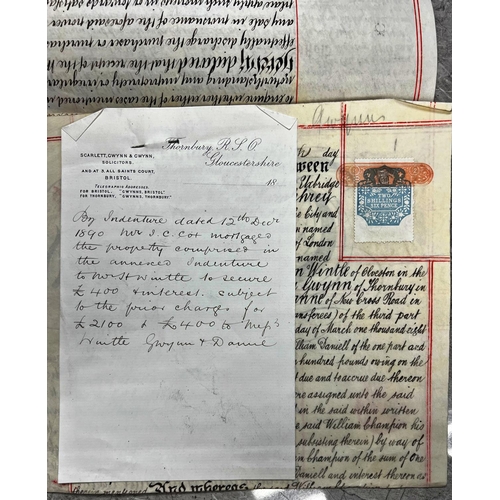 any sale in pursuance of the aforesaid
effectually discharge the purchaser or
Hereby declared that the receipt of the
notwithstanding any impropriety or irregularity
to enquire whether either of the cases mentioned
Gwynns
Thornbury, R.S.O.
Gloucestershire
SCARLETT, GWYNN & GWYNN,
SOLICITORS.
AND AT 3, ALL SAINTS COURT,
BRISTOL.
18
TELEGRAPHIC ADDRESSES.
FOR BRISTOL, "GWYNNS, BRISTOL."
FOR THORNBURY, "GWYNNS, THORNBURY."
By Indenture dated 12th Decr
1890 Mr J. C. Cox mortgaged
the property comprised in
the annexed Indenture
to Mr H Wintle to secure
£400 & interest. subject
to the prior charges for
£2100 & £400 to Mess
Wintle Gwynn & Daniel
day
ween
Uxbridge
phrey
he City and
named
of London
named
TWO
SHILLINGS
SIX PENCE
Wintle of Olveston in the
Gwynn of Thornbury in
anne of New Cross Road in
transferees) of the third part
day of March one thousand eight
William Daniell of the one part and
hundred pounds owing on the
due and to accrue due thereon
were assigned unto the said
in the said within written
said William Champion his
subsisting therein) by way of
Champion of the sum of One
Daniell and interest thereon
And whereas